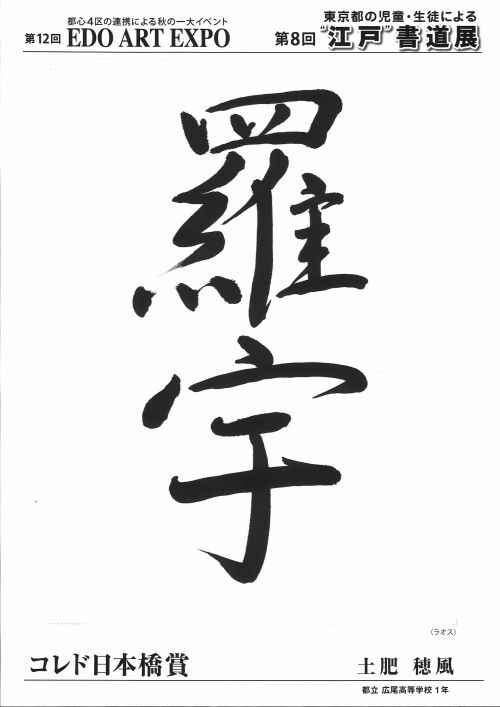 都心4区の連携による秋の一大イベント
第12回 EDO ART EXPO
東京都の児童・生徒による
第8回 “江戸”書道展
羅宇
（ラオス）
コレド日本橋賞
土肥 穂風
都立 広尾高等学校 1年